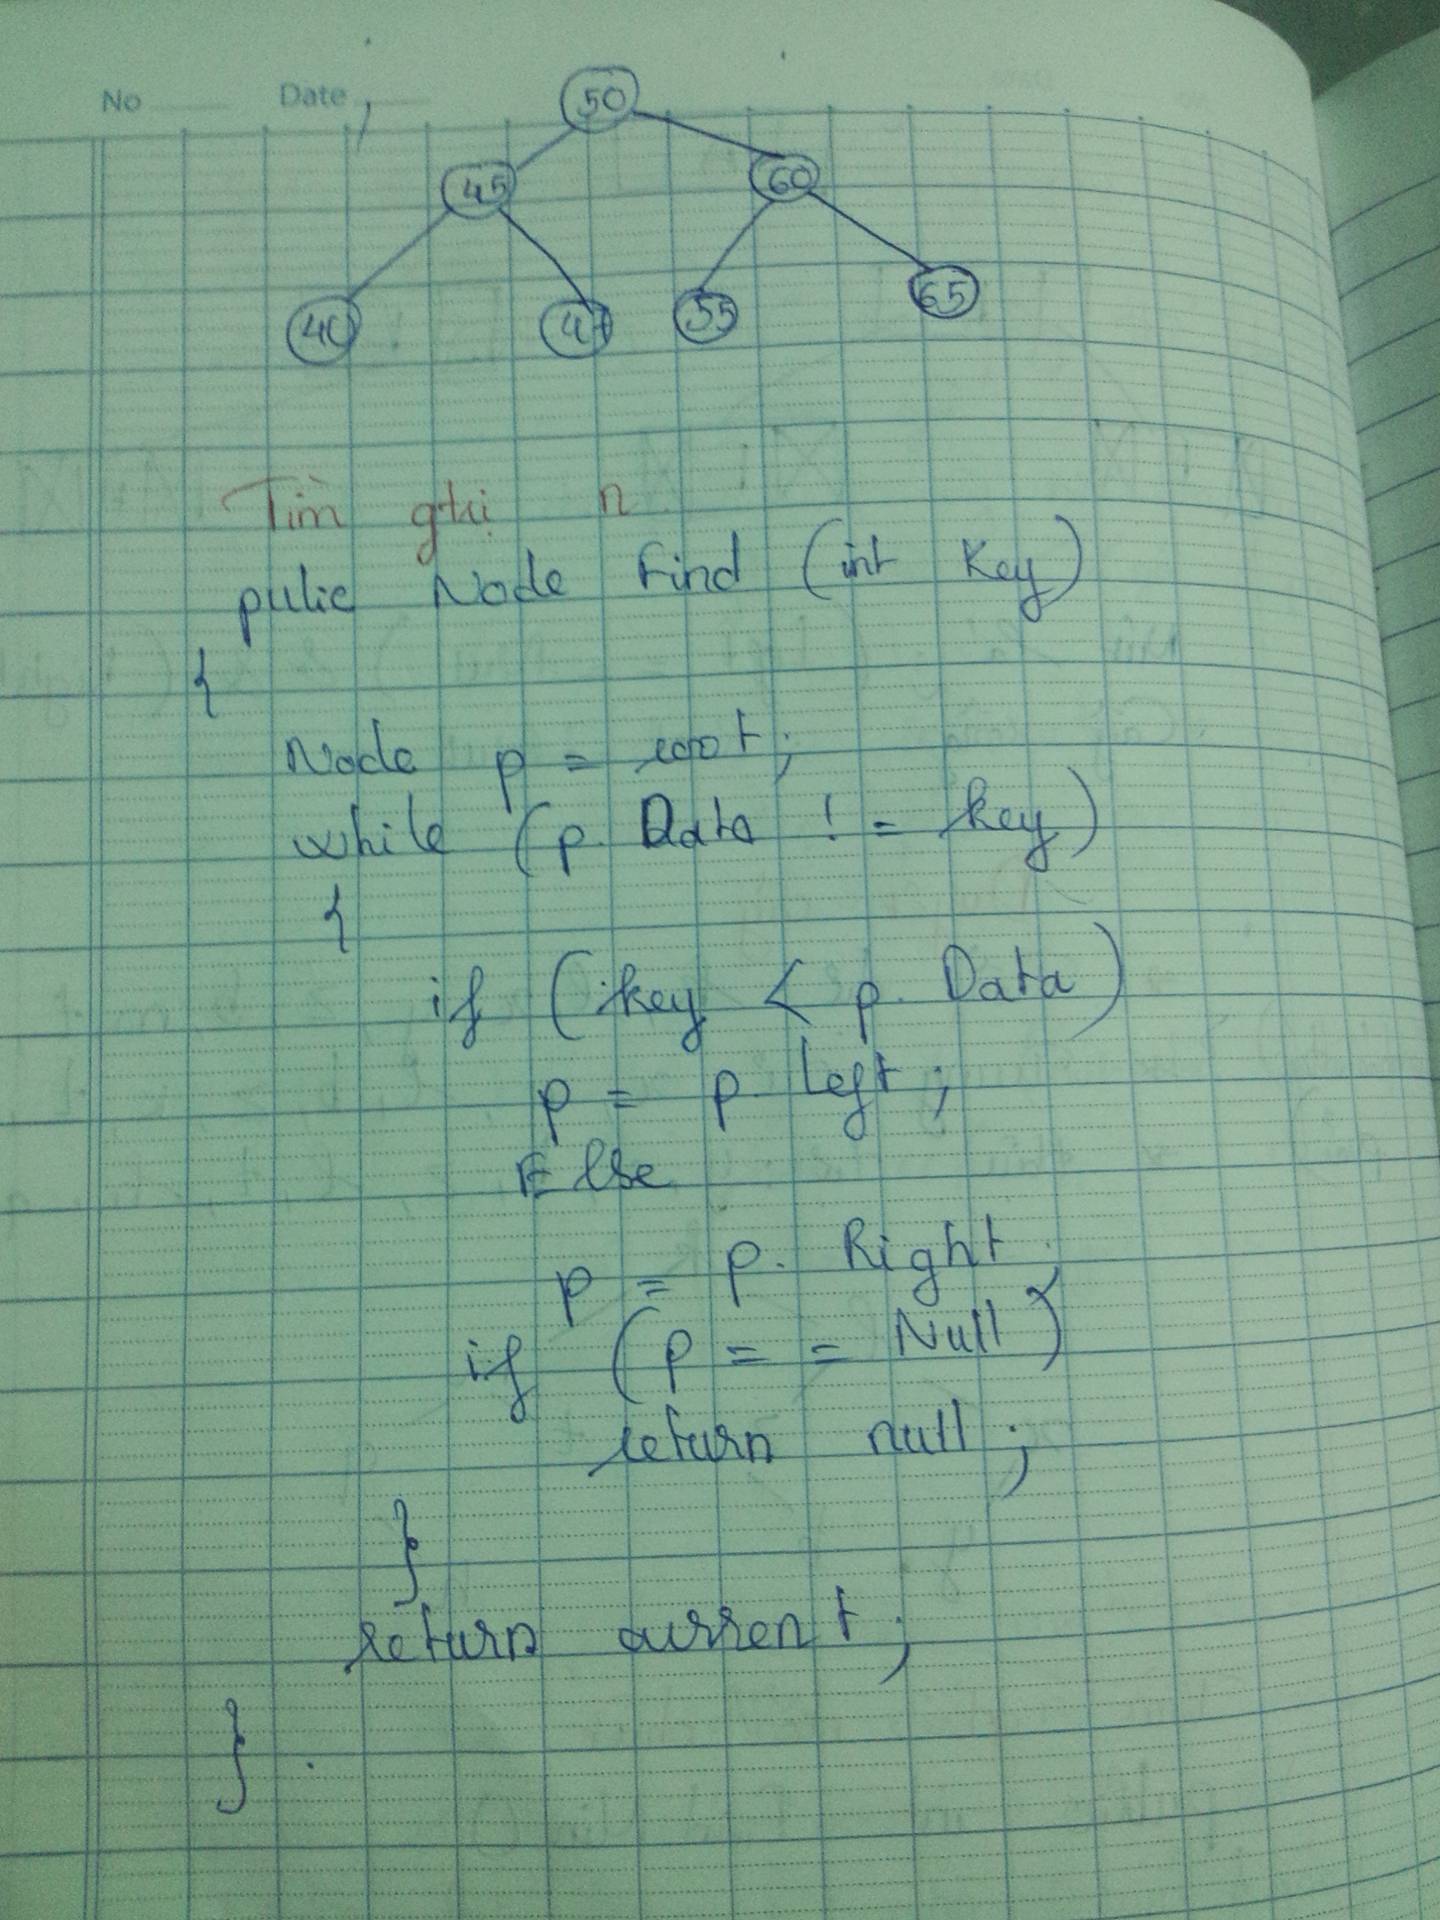 No Date
50
45 60
40 47 55 65
Tìm gtrị n
pulic Node Find (int Key)
{
Node p = root;
while (p. Data != key)
{
if (key < p. Data)
p = p. Left;
Else
p = p. Right
if (p == Null)
return null;
}
return current;
}.